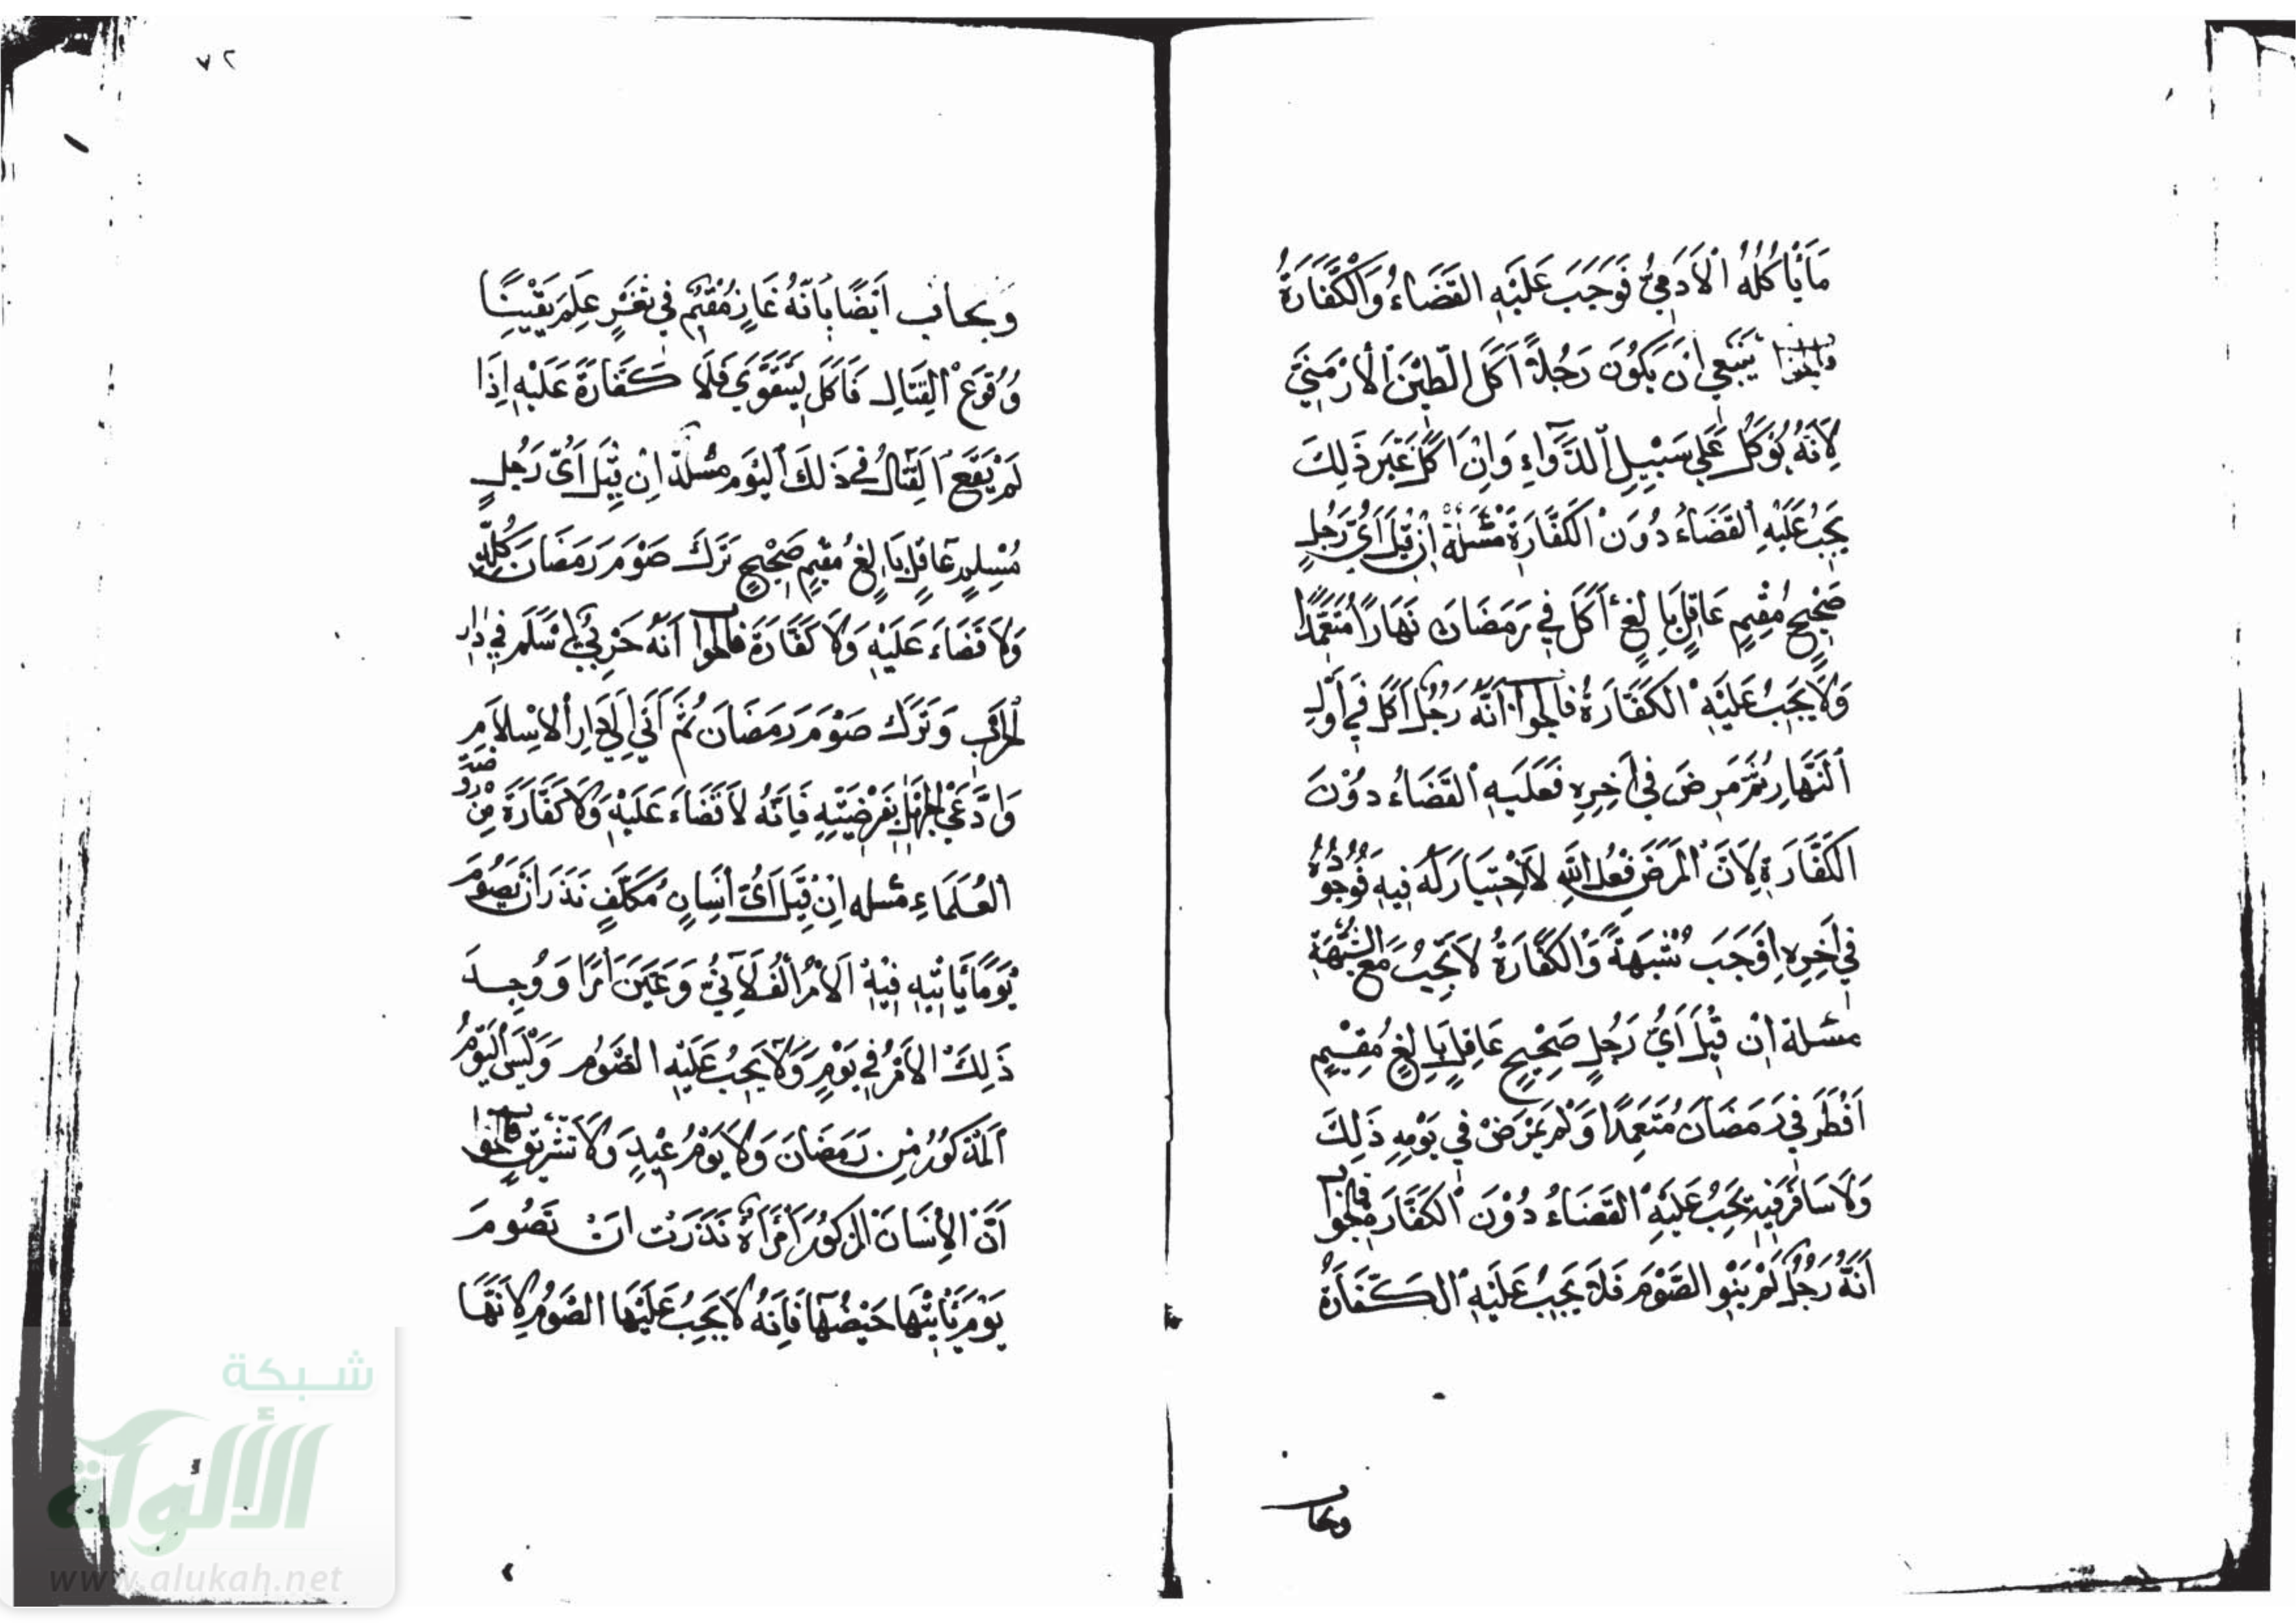 مَا يَأْكُلُهُ الْآدَمِيُّ فَوَجَبَ عَلَيْهِ الْقَضَاءُ وَالْكَفَّارَةُ
يَنْبَغِي اَنْ يَكُونَ رَجُلًا اَكَلَ الطِّيْنَ الْاَرْمَنِيَّ
لِاَنَّهُ يُؤْكَلُ عَلَى سَبِيْلِ الدَّوَاءِ وَاِنْ اَكَلَ غَيْرَ ذَلِكَ
يَجِبُ عَلَيْهِ الْقَضَاءُ دُوْنَ الْكَفَّارَةِ مَسْئَلَةٌ اِنْ قِيْلَ اَيُّ رَجُلٍ
صَحِيْحٍ مُقِيْمٍ عَاقِلٍ بَالِغٍ اَكَلَ فِي رَمَضَانَ نَهَارًا مُتَعَمِّدًا
وَلَا يَجِبُ عَلَيْهِ الْكَفَّارَةُ فالجواب اَنَّهُ رَجُلٌ اَكَلَ فِي اَوَّلِ
النَّهَارِ ثُمَّ مَرِضَ فِي اٰخِرِهِ فَعَلَيْهِ الْقَضَاءُ دُوْنَ
الْكَفَّارَةِ لِاَنَّ الْمَرَضَ فِعْلُ اللّٰهِ لَا اخْتِيَارَ لَهُ فِيْهِ فَوُجُوْدُهُ
فِي اٰخِرِهِ اَوْجَبَ شُبْهَةً وَالْكَفَّارَةُ لَا تَجِبُ مَعَ الشُّبْهَةِ
مسئلة اِنْ قِيْلَ اَيُّ رَجُلٍ صَحِيْحٍ عَاقِلٍ بَالِغٍ مُقِيْمٍ
اَفْطَرَ فِي رَمَضَانَ مُتَعَمِّدًا وَلَمْ يَمْرَضْ فِي يَوْمِهِ ذَلِكَ
وَلَا سَافَرَ فِيْهِ يَجِبُ عَلَيْهِ الْقَضَاءُ دُوْنَ الْكَفَّارَةِ فالجواب
اَنَّهُ رَجُلٌ لَمْ يَنْوِ الصَّوْمَ فَلَا يَجِبُ عَلَيْهِ الْكَفَّارَةُ
ويجاب
٧٢
ويجاب اَيْضًا بِاَنَّهُ غَازٍ مُقِيْمٌ فِي ثَغْرٍ عَلِمَ يَقِيْنًا
وُقُوْعَ الْقِتَالِ فَاَكَلَ لِيَتَقَوَّى فَلَا كَفَّارَةَ عَلَيْهِ اِذَا
لَمْ يَقَعِ الْقِتَالُ فِي ذَلِكَ الْيَوْمِ مسئلة اِنْ قِيْلَ اَيُّ رَجُلٍ
مُسْلِمٍ عَاقِلٍ بَالِغٍ مُقِيْمٍ صَحِيْحٍ تَرَكَ صَوْمَ رَمَضَانَ كُلِّهِ
وَلَا قَضَاءَ عَلَيْهِ وَلَا كَفَّارَةَ فالجواب اَنَّهُ حَرْبِيٌّ اَسْلَمَ فِي دَارِ
الْحَرْبِ وَتَرَكَ صَوْمَ رَمَضَانَ ثُمَّ اَتَى اِلَى دَارِ الْاِسْلَامِ
وَادَّعَى الْجَهْلَ بِفَرْضِيَّتِهِ فَاِنَّهُ لَا قَضَاءَ عَلَيْهِ وَلَا كَفَّارَةَ مِنْ
الْعُلَمَاءِ مسئله اِنْ قِيْلَ اَيُّ اِنْسَانٍ مُكَلَّفٍ نَذَرَ اَنْ يَصُوْمَ
يَوْمًا يَاْتِيْهِ فِيْهِ الْاَمْرُ الْفُلَانِيُّ وَعَيَّنَ اَمْرًا وَوُجِدَ
ذَلِكَ الْاَمْرُ فِي يَوْمٍ وَلَا يَجِبُ عَلَيْهِ الصَّوْمُ وَلَيْسَ الْيَوْمُ
الْمَذْكُوْرُ مِنْ رَمَضَانَ وَلَا يَوْمُ عِيْدٍ وَلَا تَشْرِيْقٍ فالجواب
اَنَّ الْاِنْسَانَ الْمَذْكُوْرَ اَمْرَأَةٌ نَذَرَتْ اَنْ تَصُوْمَ
يَوْمَ يَاْتِيْهَا حَيْضُهَا فَاِنَّهُ لَا يَجِبُ عَلَيْهَا الصَّوْمُ لِاَنَّهَا
شبكة
الألوكة
www.alukah.net